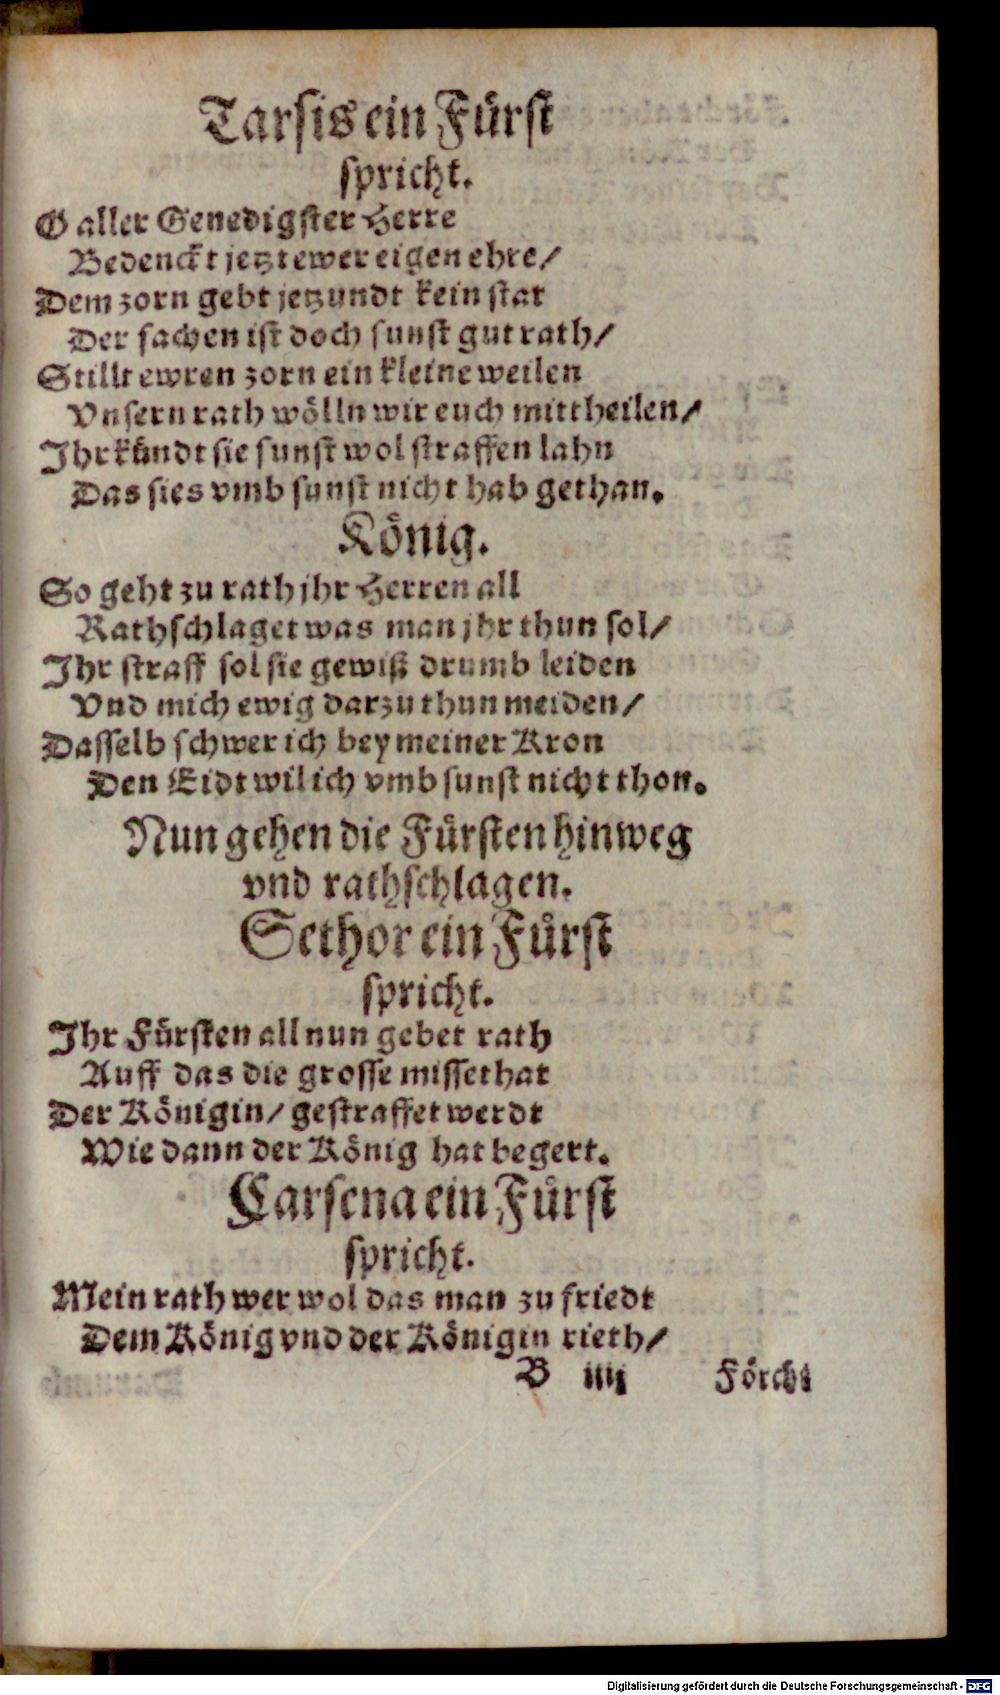 Tarsis ein Fürst
spricht.
O aller Genedigster Herre
Bedenckt jetzt ewer eigen ehre/
Dem zorn gebt jetzundt kein stat
Der sachen ist doch sunst gut rath/
Stillt ewren zorn ein kleine weilen
Vnsern rath wölln wir euch mittheilen/
Ihr kündt sie sunst wol straffen lahn
Das sies vmb sunst nicht hab gethan.
König.
So geht zu rath jhr Herren all
Rathschlaget was man jhr thun sol/
Ihr straff sol sie gewiß drumb leiden
Vnd mich ewig darzu thun meiden/
Dasselb schwer ich bey meiner Kron
Den Eidt wil ich vmb sunst nicht thon.
Nun gehen die Fürsten hinweg
vnd rathschlagen.
Sethor ein Fürst
spricht.
Ihr Fürsten all nun gebet rath
Auff das die grosse missethat
Der Königin/ gestraffet werdt
Wie dann der König hat begert.
Carsena ein Fürst
spricht.
Mein rath wer wol das man zu friedt
Dem König vnd der Königin rieth/
B iiij Förcht
Digitalisierung gefördert durch die Deutsche Forschungsgemeinschaft - DFG